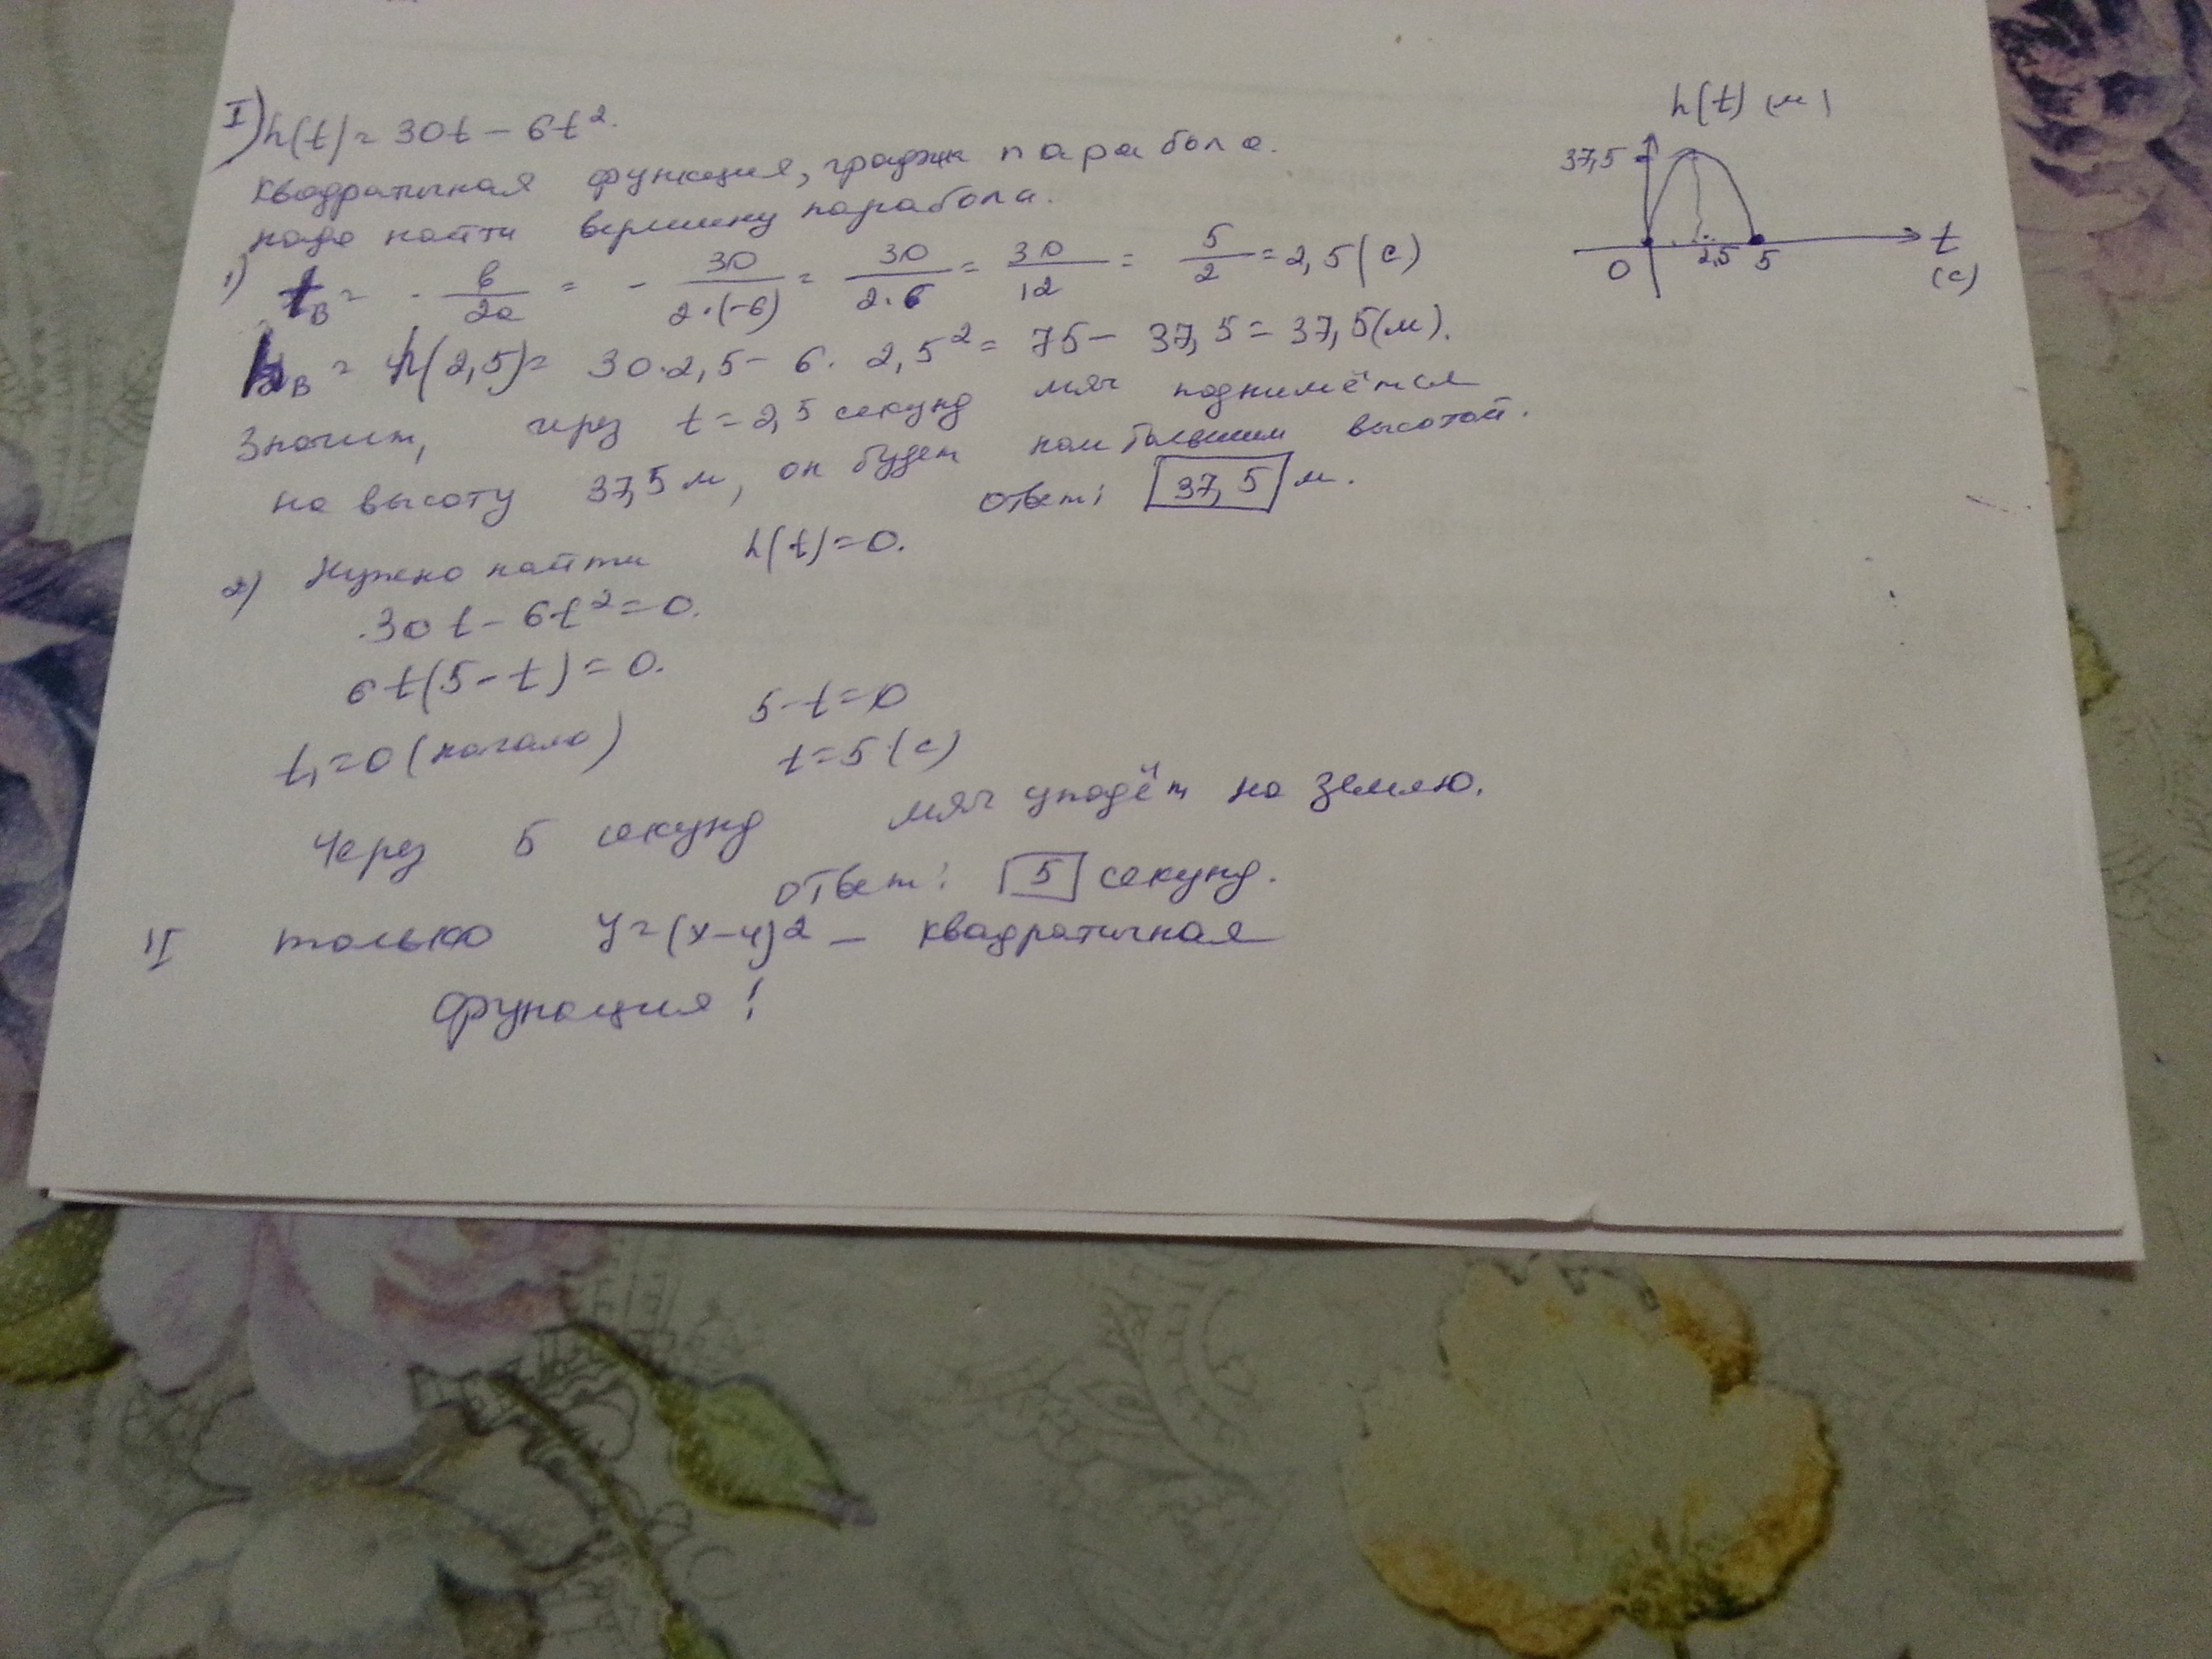 I) h(t) = 30t - 6t².
Квадратичная функция, график парабола.
надо найти вершину парабола.
1) tв = - в/2а = - 30/2·(-6) = 30/2·6 = 30/12 = 5/2 = 2,5 (с)
hв = h(2,5) = 30·2,5 - 6·2,5² = 75 - 37,5 = 37,5 (м).
Значит, через t = 2,5 секунд мяч поднимётся
на высоту 37,5 м, он будет наибольшим высотой.
ответ: 37,5 м.
2) Нужно найти h(t) = 0.
30t - 6t² = 0.
6t(5 - t) = 0.
t₁ = 0 (начало) 5 - t = 0
t = 5 (с)
Через 5 секунд мяч упадёт на землю.
ответ: 5 секунд.
II только y = (x-4)2 - квадратичная
функция!
h(t) (м)
37,5
0 2,5 5 t
(с)